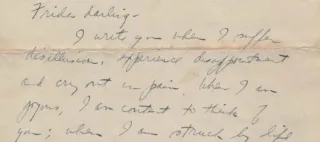 Frides darling -
I write you when I suffer
disillusion, experience disappointment
and cry out in pain. When I am
joyous, I am content to think of
you; when I am struck by life